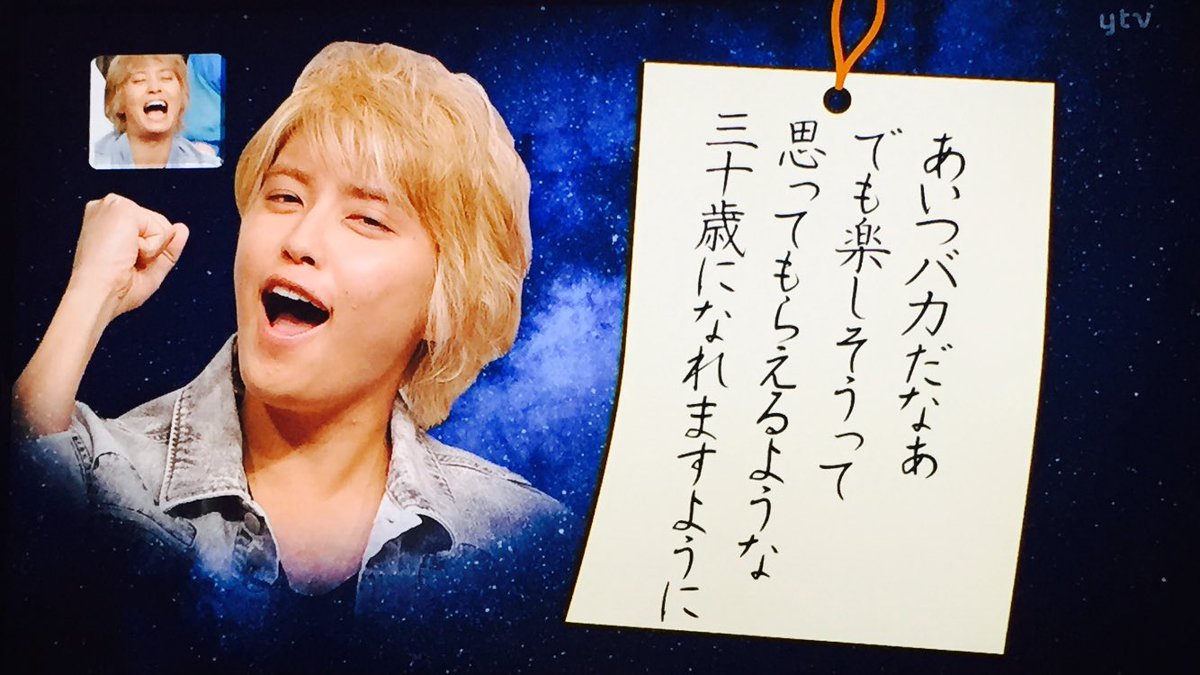 あいつバカだなあ
でも楽しそうって
思ってもらえるような
三十歳になれますように
ytv